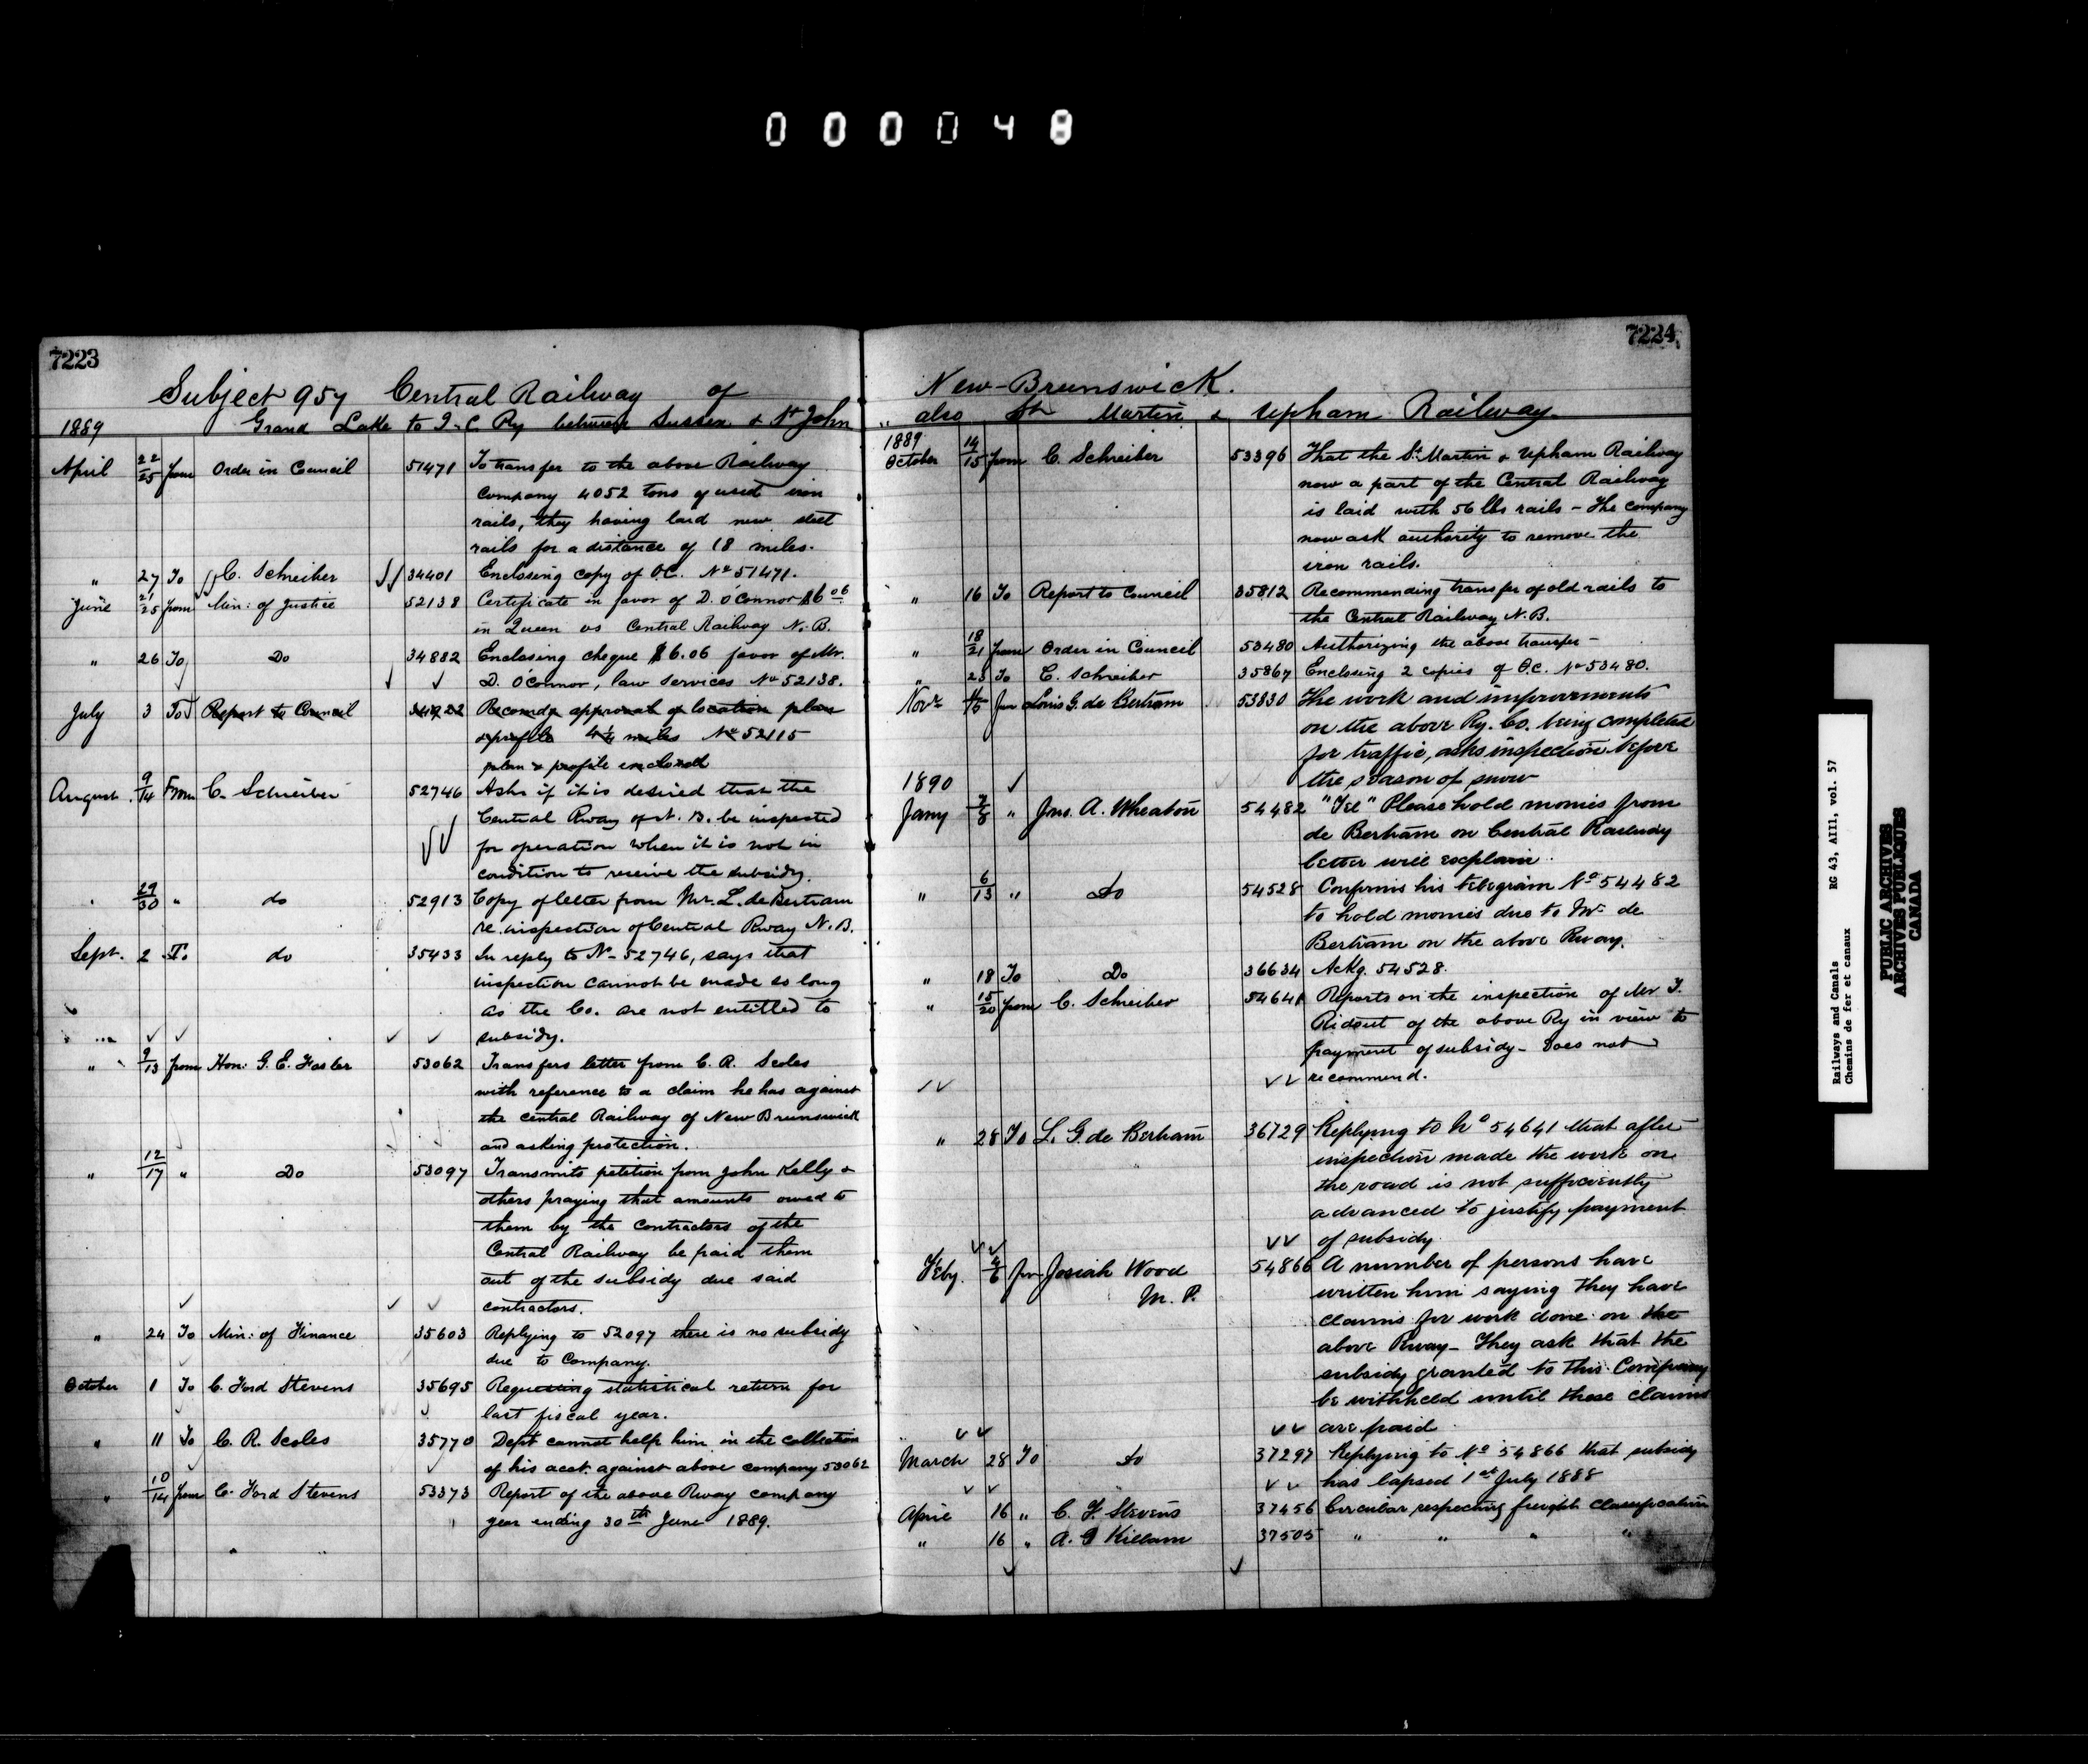 000048
7223
Subject 957 Central Railway of
1889 Grand Lake to I.C Ry between Sussex & St John
April 22/25 from Order in Council 51471 To transfer to the above Railway
company 4052 tons of used iron
rails, they having laid new steel
rails for a distance of 18 miles.
" 27 To C. Schreiber 34401 Enclosing copy of O.C. No 51471.
June 21/25 from Min: of Justice 52138 Certificate in favor of D. O'Connor $6.06
in Queen vs Central Railway N.B.
" 26 To Do 34882 Enclosing cheque $6.06 favor of Mr.
D. O'Connor, law services No 52138.
July 3 To Report to Council 34922 Recomdg approval of location plan
& profile 4¼ miles No 52115
plan & profile enclosed
August 9/14 From C. Schreiber 52746 Asks if it is desired that the
Central Rway of N.B. be inspected
for operation when it is not in
condition to receive the subsidy.
" 29/30 " do 52913 Copy of letter from Mr. L. de Bertram
re inspection of Central Rway N.B.
Sept. 2 To do 35433 In reply to No 52746, says that
inspection cannot be made so long
as the Co. are not entitled to
subsidy.
" 9/13 from Hon: G. E. Foster 53062 Transfers letter from C. R. Scoles
with reference to a claim he has against
the Central Railway of New Brunswick
and asking protection.
" 12/17 " Do 53097 Transmits petition from John Kelly &
others praying that amounts owed to
them by the contractors of the
Central Railway be paid them
out of the subsidy due said
contractors.
" 24 To Min: of Finance 35603 Replying to 52097 there is no subsidy
due to Company.
October 1 To C. Ford Stevens 35695 Requesting statistical return for
last fiscal year.
" 11 To C. R. Scoles 35770 Dept cannot help him in the collection
of his acct. against above company 53062
" 10/14 from C. Ford Stevens 53373 Report of the above Rway company
year ending 30th June 1889.
7224
New-Brunswick.
" also St Martin & Upham Railway
1889
October 14/15 from C. Schreiber 53396 That the St. Martin & Upham Railway
now a part of the Central Railway
is laid with 56 lbs rails - The company
now ask authority to remove the
iron rails.
" 16 To Report to Council 35812 Recommending transfer of old rails to
the Central Railway N.B.
" 18/21 from Order in Council 53480 Authorizing the above transfer -
" 23 To C. Schreiber 35867 Enclosing 2 copies of O.C. No 53480.
Novr from Louis G. de Bertram 53830 The work and improvements
on the above Ry. Co. being completed
for traffic, asks inspection before
the season of snow
1890
Jany " Jno. A. Wheaton 54482 "Tel" Please hold monies from
de Bertram on Central Railway
letter will explain.
" 6/13 " Do 54528 Confirms his telegram No 54482
to hold monies due to Mr. de
Bertram on the above Rway.
" 18 To Do 36634 Ackg. 54528.
" 15/20 from C. Schreiber 54641 Reports on the inspection of Mr T.
Ridout of the above Ry in view to
payment of subsidy - Does not
recommend.
" 28 To L. G. de Bertram 36729 Replying to No 54641 that after
inspection made the work on
the road is not sufficiently
advanced to justify payment
of subsidy.
Feby. 4/6 from Josiah Wood 54866 A number of persons have
M. P. written him saying they have
claims for work done on the
above Rway - They ask that the
subsidy granted to this Company
be withheld until these claims
are paid
March 28 To do 37297 Replying to No 54866 that subsidy
has lapsed 1st July 1888
April 16 " C. F. Stevens 37456 Circular respecting freight classification
" 16 " A. E Killam 37505 " " " "
Railways and Canals RG 43, AIII, vol. 57
Chemins de fer et canaux
PUBLIC ARCHIVES
ARCHIVES PUBLIQUES
CANADA